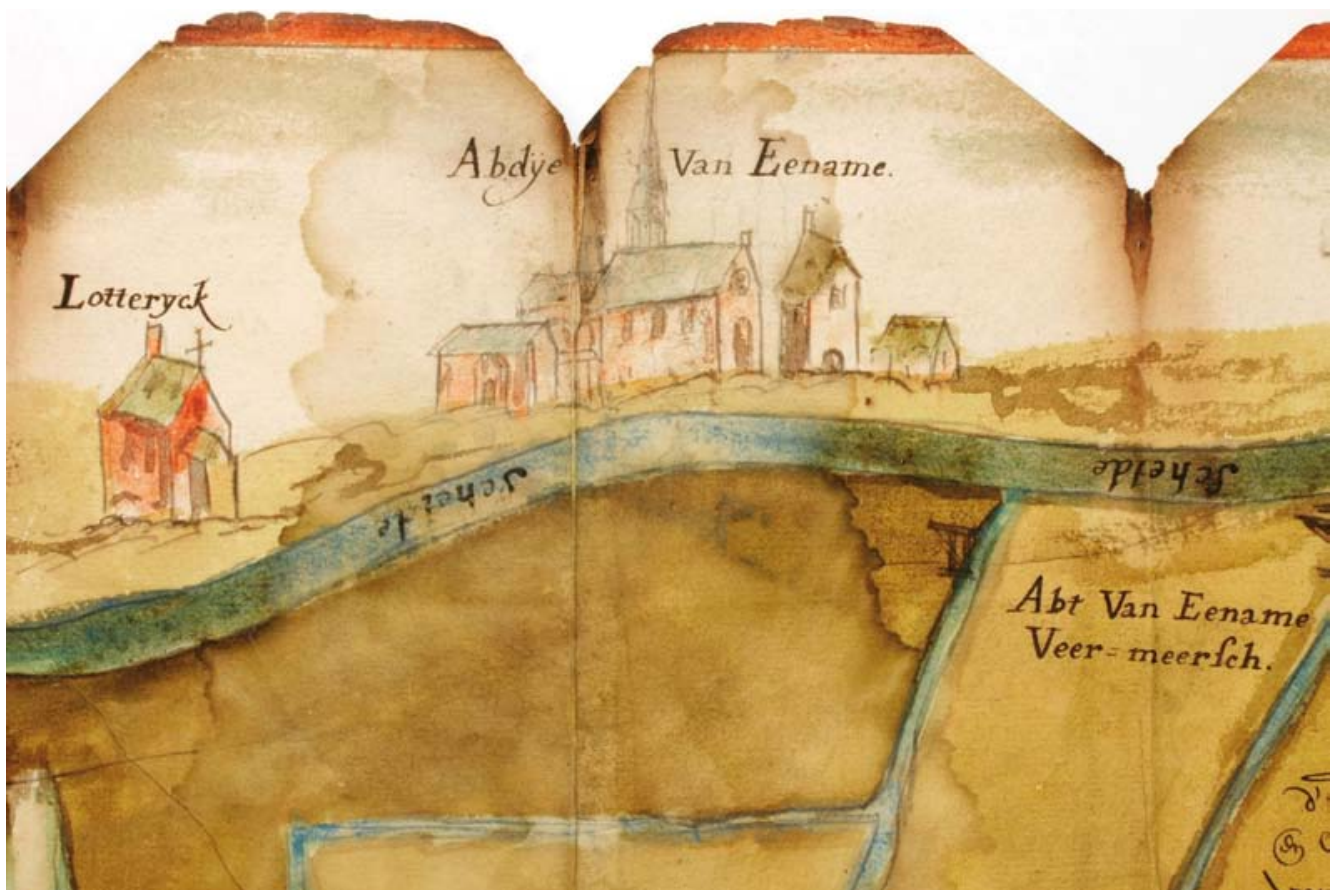 Abdÿe Van Eename.
Lotteryck
Schelde
Schelde
Abt Van Eename
Veer=meerſch.